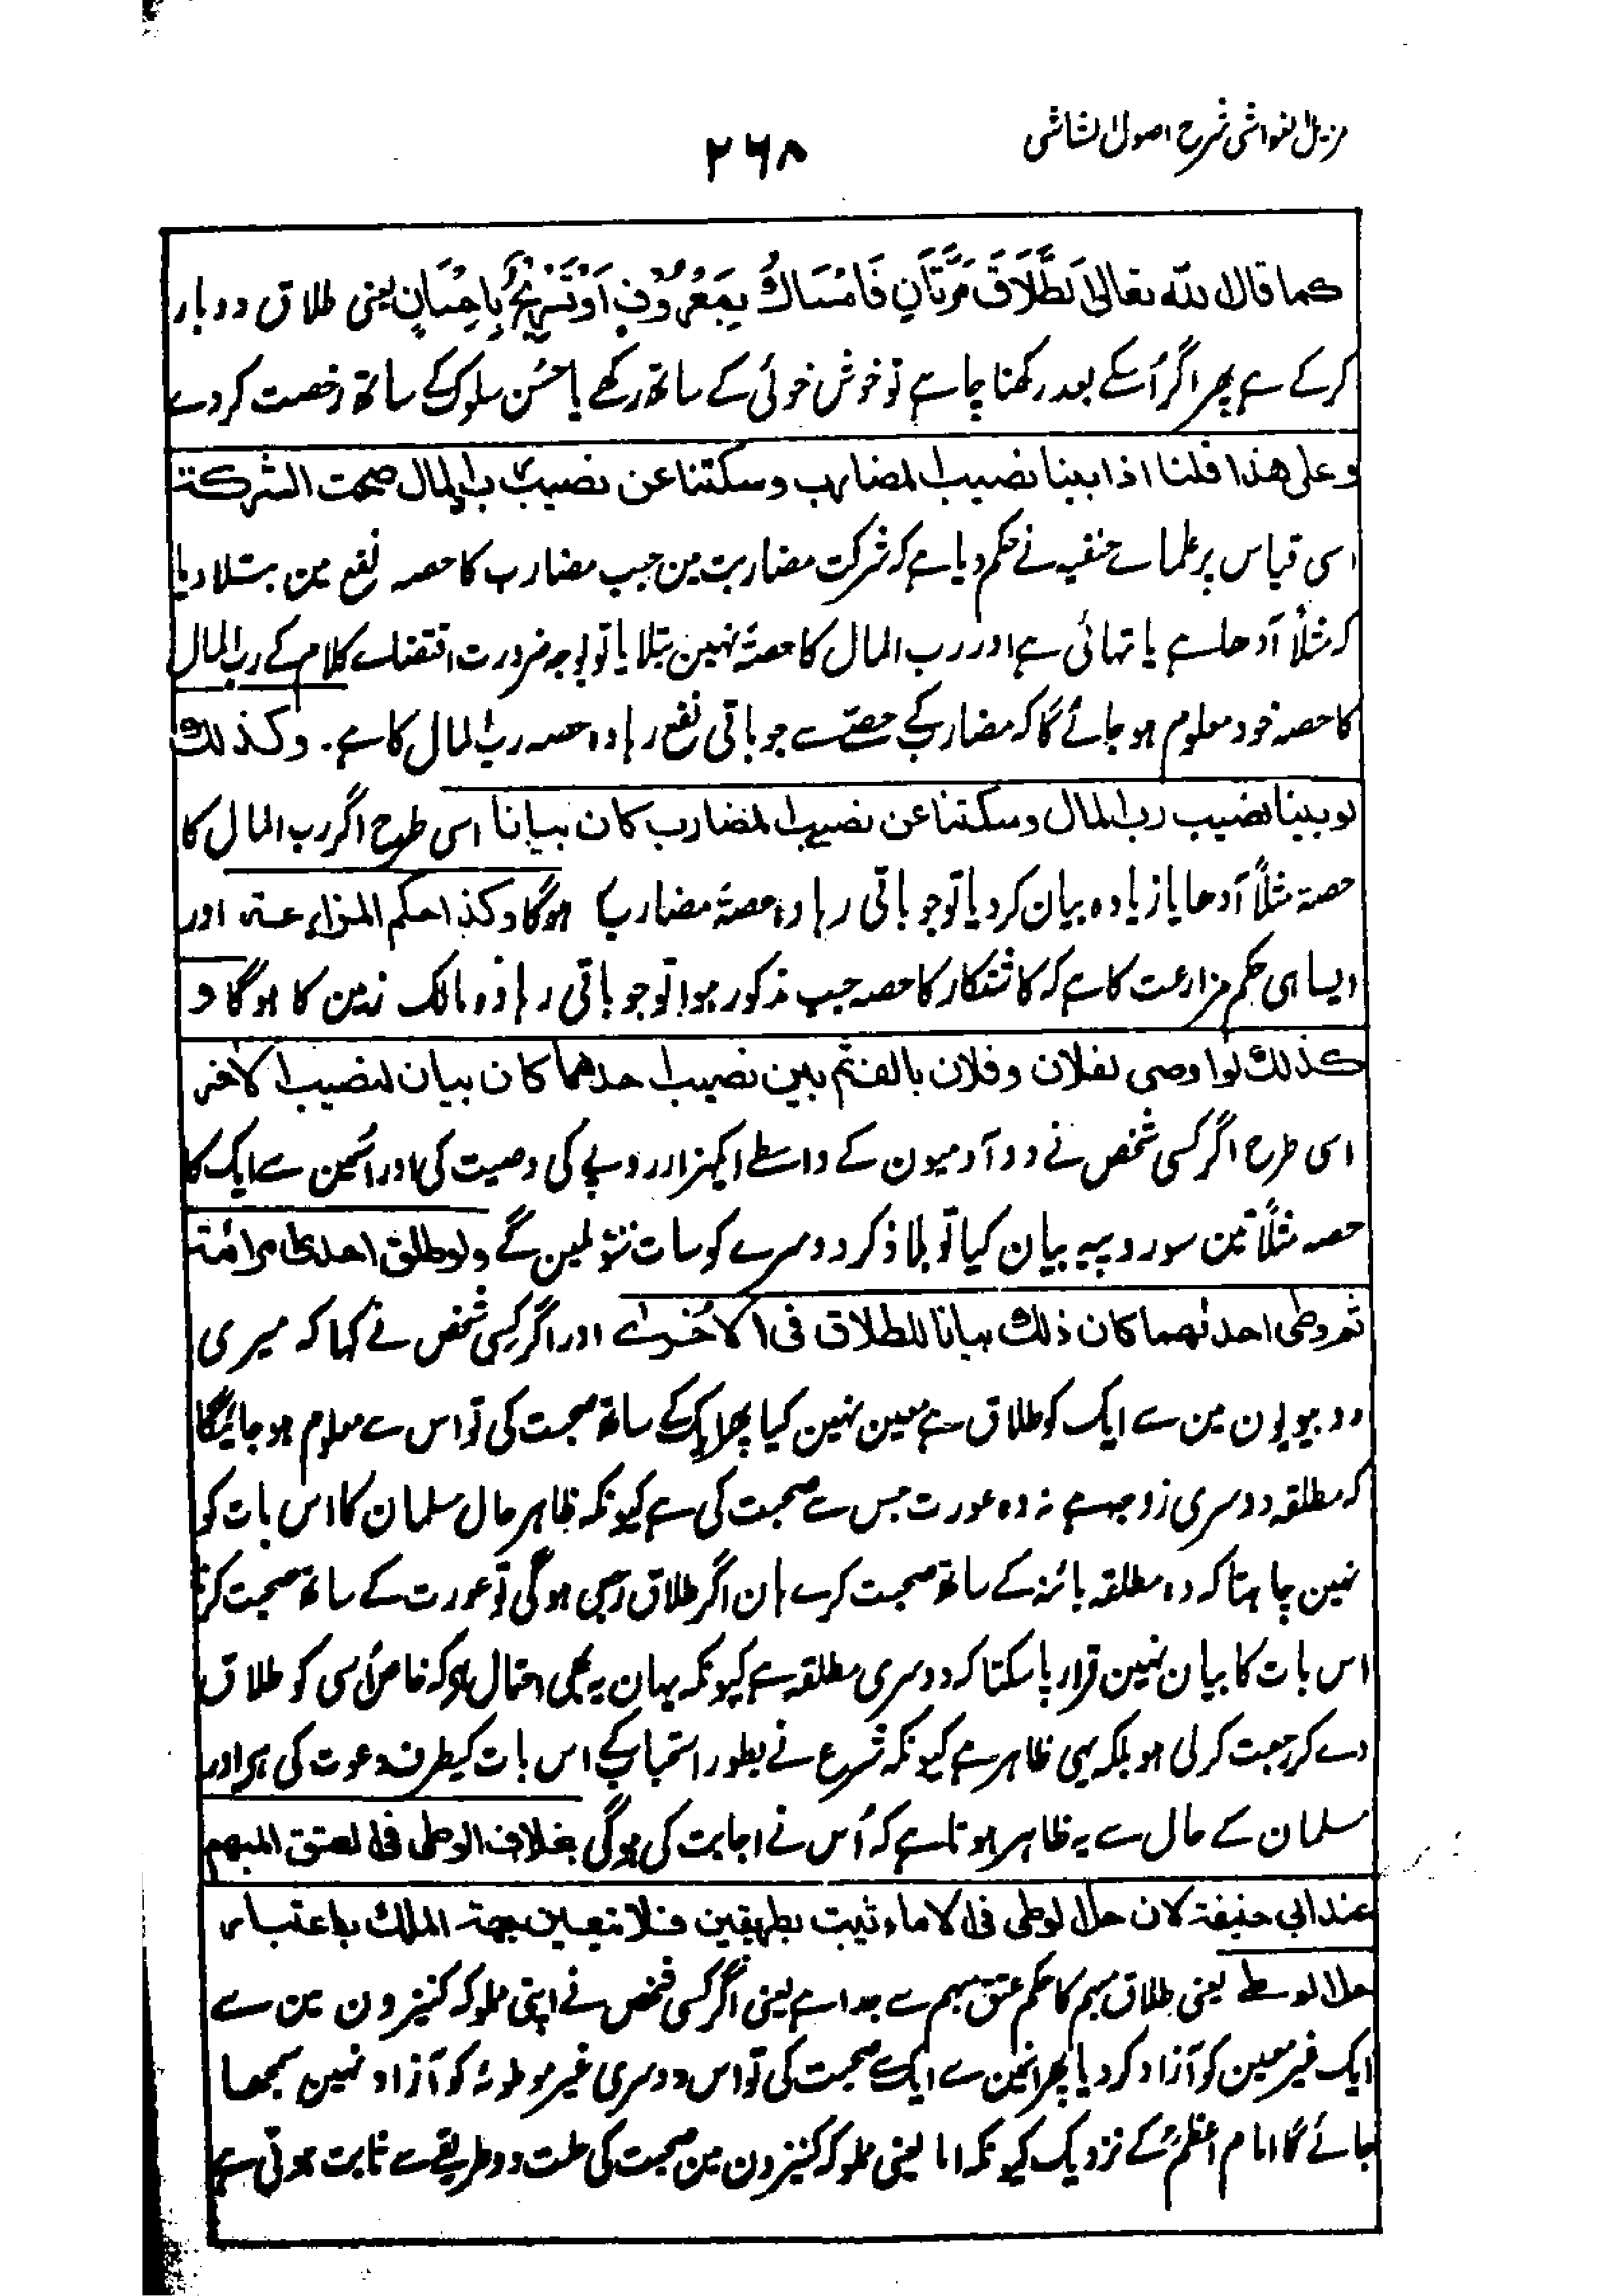 مزیل الغواشی شرح اصول الشاشی
۲۶۸
کما قال اللہ تعالیٰ اَلطَّلَاقُ مَرَّتَانِ فَاِمْسَاکٌ بِمَعْرُوْفٍ اَوْ تَسْرِیْحٌ بِاِحْسَانٍ یعنی طلاق دو بار
کر کے ہے پھر اگر اُسکے بعد رکھنا چاہے تو خوش خوئی کے ساتھ رکھے یا حسُن سلوک کے ساتھ رخصت کردے
وعلی ھذا قلنا اذا بینا نصیب المضارب وسکتنا عن نصیب رب المال صحت الشرکۃ
اسی قیاس پر علمائے حنفیہ نے حکم دیا ہے کہ شرکت مضاربت مین جب مضارب کا حصہ نفع مین بتلا دیا
کہ مثلاً آدھا ہے یا تہائی ہے اور رب المال کا حصہ نہین بتلایا تو بوجہ ضرورت اقتضاے کلام کے رب المال
کا حصہ خود معلوم ہو جائے گا کہ مضارب کے حصے سے جو باقی نفع رہا وہ حصہ رب المال کا ہے۔ وکذلک
لو بینا نصیب رب المال وسکتنا عن نصیب المضارب کان بیانا اسی طرح اگر رب المال کا
حصہ مثلاً آدھا یا زیادہ بیان کر دیا تو جو باقی رہا وہ حصہ مضارب کا ہوگا وکذا حکم المزارعۃ اور
ایسا ہی حکم مزارعت کا ہے کہ کاشتکار کا حصہ جب مذکور ہوا تو جو باقی رہا وہ مالک زمین کا ہوگا و
کذلک لو اوصی لفلان وفلان بالف ثم بین نصیب احدھما کان بیان لنصیب الاٰخر
اسی طرح اگر کسی شخص نے دو آدمیون کے واسطے ایکہزار روپے کی وصیت کی اور اُنمین سے ایک کا
حصہ مثلاً تین سو روپیہ بیان کیا تو بلا ذکر دوسرے کو سات سَو ملین گے ولو طلق احدی امراتیہ
ثم وطی احدٰھما کان ذلک بیانا للطلاق فی الاخرٰے اور اگر کسی شخص نے کہا کہ میری
دو بیویون مین سے ایک کو طلاق ہے معین نہین کیا پھر ایک کے ساتھ صحبت کی تو اس سے معلوم ہو جائیگا
کہ مطلقہ دوسری زوجہ ہے نہ وہ عورت جس سے صحبت کی ہے کیونکہ ظاہر حال مسلمان کا اس بات کو
نہین چاہتا کہ وہ مطلقہ بائنہ کے ساتھ صحبت کرے ہان اگر طلاق رجعی ہوگی تو عورت کے ساتھ صحبت کرنا
اس بات کا بیان نہین قرار پا سکتا کہ دوسری مطلقہ ہے کیونکہ یہان یہ بھی احتمال ہو کہ خاص اُسی کو طلاق
دے کر رجعت کر لی ہو بلکہ یہی ظاہر ہے کیونکہ شرع نے بطور استحباب کے اس بات کیطرف دعوت کی ہو اور
مسلمان کے حال سے یہ ظاہر ہوتا ہے کہ اُس نے اجابت کی ہوگی بخلاف الوطی فی العتق المبھم
عند ابی حنیفۃ لان حل الوطی فی الاماء ثبت بطریقین فلا یتعین جھۃ الملک باعتبار
حل الوطے یعنی طلاق مبہم کا حکم عتق مبہم سے جدا ہے یعنی اگر کسی شخص نے اپنی مملوکہ کنیزون مین سے
ایک غیر معین کو آزاد کر دیا پھر انمین سے ایک سے صحبت کی تو اس دوسری غیر موطوئہ کو آزاد نہین سمجھا
جائے گا امام اعظمؒ کے نزدیک کیونکہ اما یعنی مملوکہ کنیزون مین صحبت کی حلت دو طریقے سے ثابت ہوتی ہے